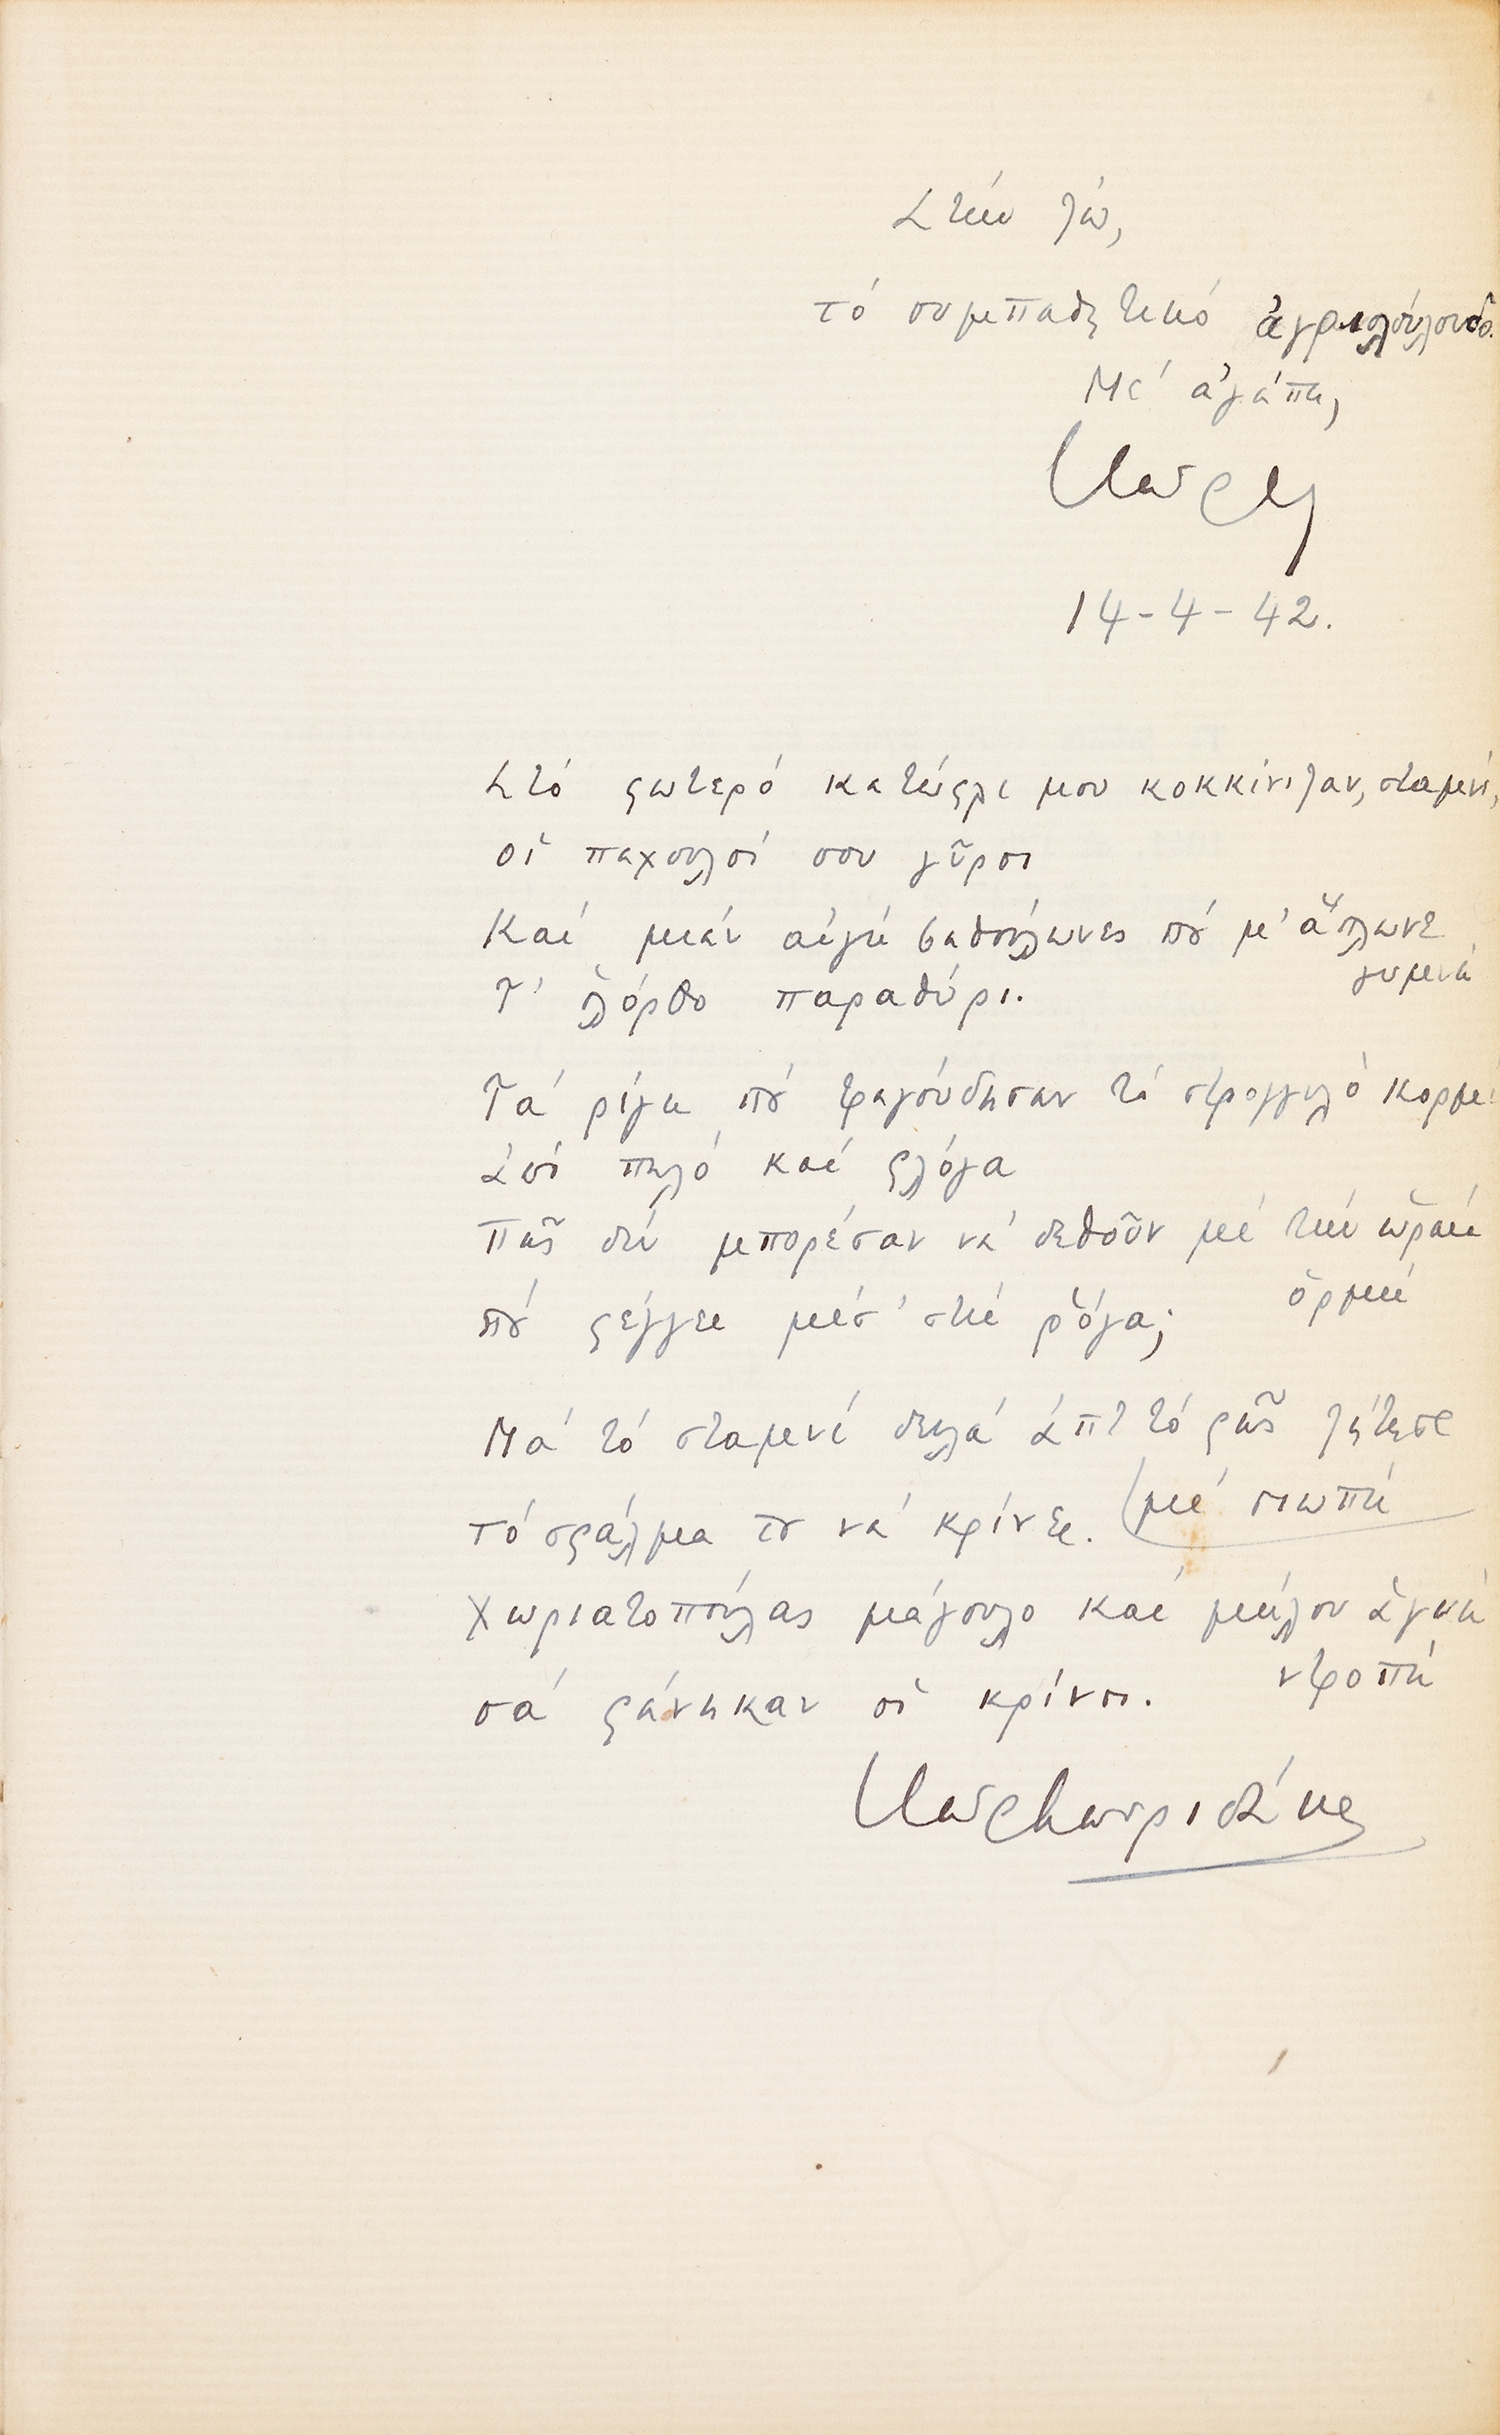 Στήν Ζώ,
τό συμπαθητικό ἀγριολούλουδο.
Μέ ἀγάπη,
14-4-42.
Στό φωτερό κατώφλι μου κοκκίνιζαν, σταμνί,
οἱ παχουλοί σου γῦροι
Καί μιάν αὐγή βαθούλωνες πού μ' ἅπλωνε
γυμνά
Τ' ὁλόρθο παραθύρι.
Τά ρίγη πού τραγούδησαν τό στρογγυλό κορμί
Ἀπό πηλό καί φλόγα
Πῶς δέν μπορέσαν νά δεθοῦν μέ τήν ὡραία
ὁρμή
πού φέγγει μέσ' στή ρόγα;
Μά τό σταμνί δειλά ἀπ' τό φῶς ζήτησε
τό σφάλμα του νά κρίνει. (μέ σιωπή
Χωριατοπούλας μάγουλο καί μήλου ἁγνή
ντροπή
σά φάνηκαν οἱ κρίνοι.